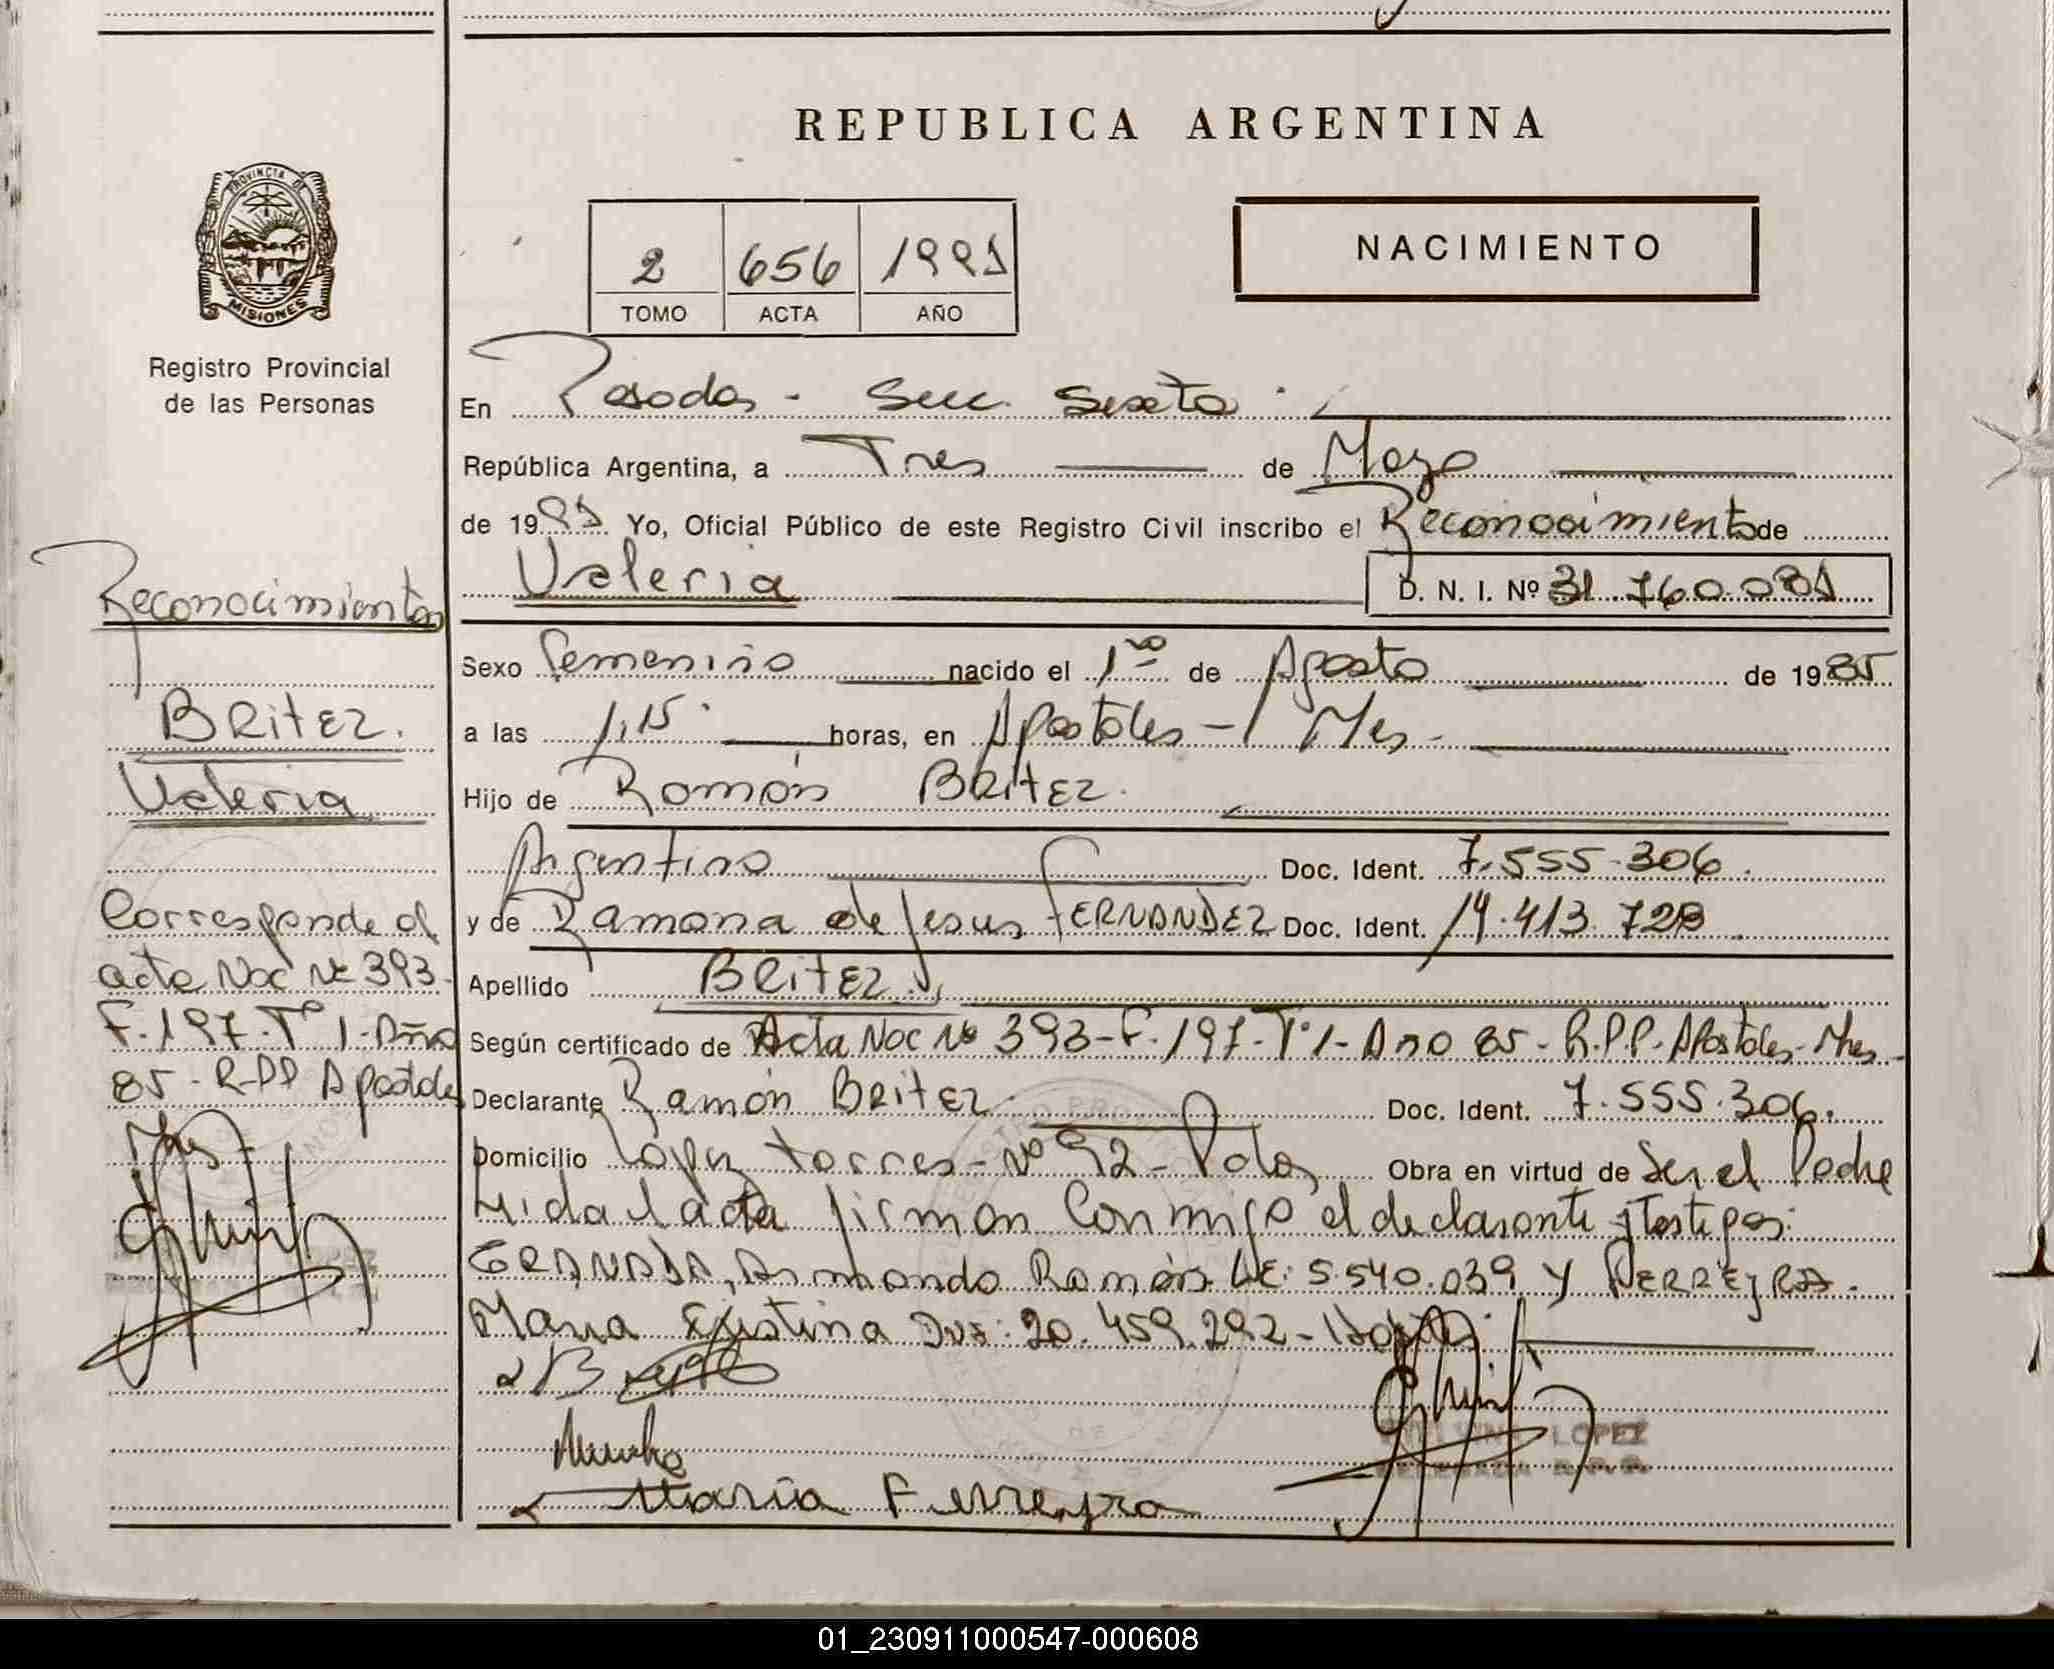 REPUBLICA ARGENTINA
PROVINCIA DE
MISIONES
Registro Provincial
de las Personas
2 656 1991
TOMO ACTA AÑO
NACIMIENTO
En Posadas - Secc. Sexta -
República Argentina, a Tres de Mayo
de 1991 Yo, Oficial Público de este Registro Civil inscribo el Reconocimiento de
Valeria D. N. I. Nº 31.760.081
Sexo Femenino nacido el 1ro de Agosto de 1985
a las 1,15 horas, en Apostoles - Mes -
Hijo de Ramón BRITEZ
Argentino Doc. Ident. 7.555.306
y de Ramona de Jesus FERNANDEZ Doc. Ident. 14.413.728
Apellido BRITEZ
Según certificado de Acta Nac Nº 393 - F. 197 - Tº 1 - Año 85 - R.P.P. Apostoles - Mnes -
Declarante Ramón BRITEZ Doc. Ident. 7.555.306.
Domicilio Lopez torres - Nº 92 - Pdas Obra en virtud de Ser el Padre
Lida l acta firman Conmigo el declarante y testigos:
GRANADA, Armando Ramón LE: 5.540.039 Y FERREYRA
Maria Cristina DNI: 20.459.292 -
Maria Ferreyra
LOPEZ
Reconocimiento
BRITEZ.
Valeria
Corresponde al
acta Nac Nº 393 -
F. 197 - Tº 1 - Año
85 - R.P.P Apostoles
Mnes -
01_230911000547-000608